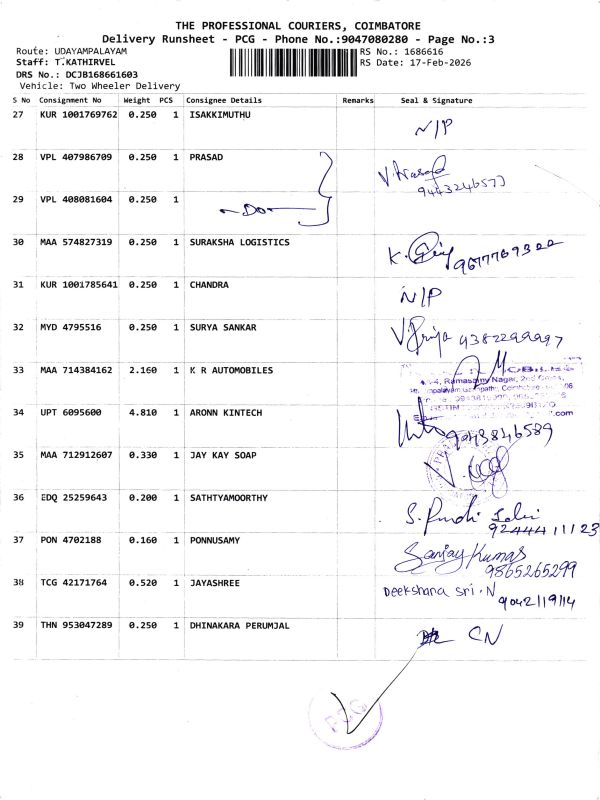 THE PROFESSIONAL COURIERS, COIMBATORE
Delivery Runsheet - PCG - Phone No.:9047080280 - Page No.:3
Route: UDAYAMPALAYAM RS No.: 1686616
Staff: T.KATHIRVEL RS Date: 17-Feb-2026
DRS No.: DCJB168661603
Vehicle: Two Wheeler Delivery
S No Consignment No Weight PCS Consignee Details Remarks Seal & Signature
27 KUR 1001769762 0.250 1 ISAKKIMUTHU N/P
28 VPL 407986709 0.250 1 PRASAD V. Prasad
9443246573
29 VPL 408081604 0.250 1 -Do-
30 MAA 574827319 0.250 1 SURAKSHA LOGISTICS K.
31 KUR 1001785641 0.250 1 CHANDRA N/P
32 MYD 4795516 0.250 1 SURYA SANKAR V. Priya 9382299997
33 MAA 714384162 2.160 1 K R AUTOMOBILES
Ramasamy Nagar, 2nd Cross,
34 UPT 6095600 4.810 1 ARONN KINTECH 9043846589
35 MAA 712912607 0.330 1 JAY KAY SOAP
36 EDQ 25259643 0.200 1 SATHTYAMOORTHY S.
9244411123
37 PON 4702188 0.160 1 PONNUSAMY Sanjay Kumar
9865265299
38 TCG 42171764 0.520 1 JAYASHREE Deekshana sri.N
9042119114
39 THN 953047289 0.250 1 DHINAKARA PERUMJAL CN
PCG